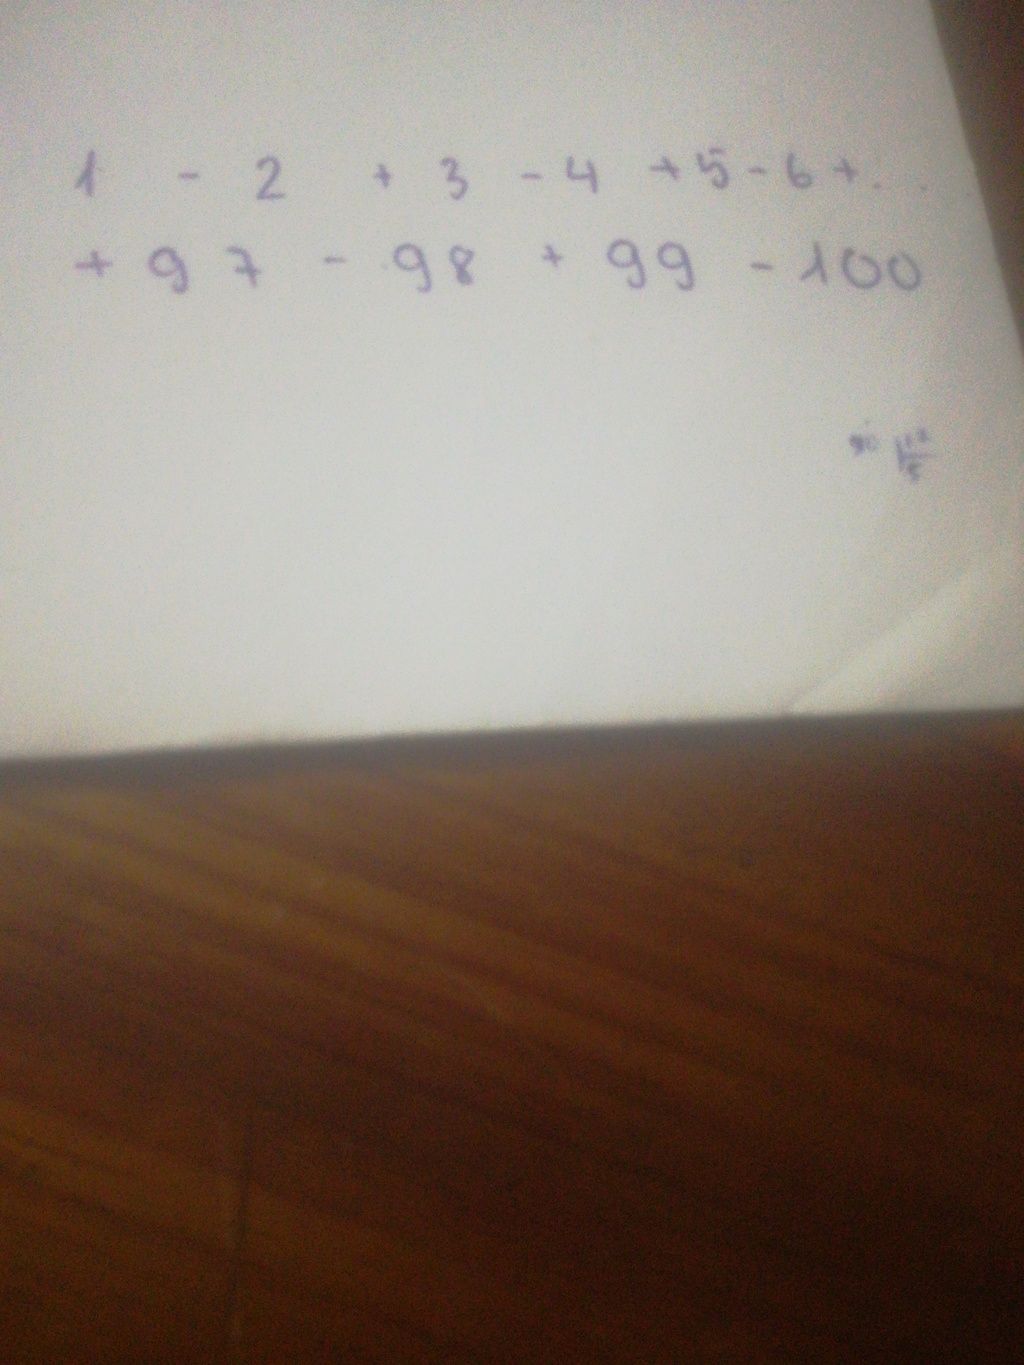 1 - 2 + 3 - 4 + 5 - 6 + ...
+ 97 - 98 + 99 - 100